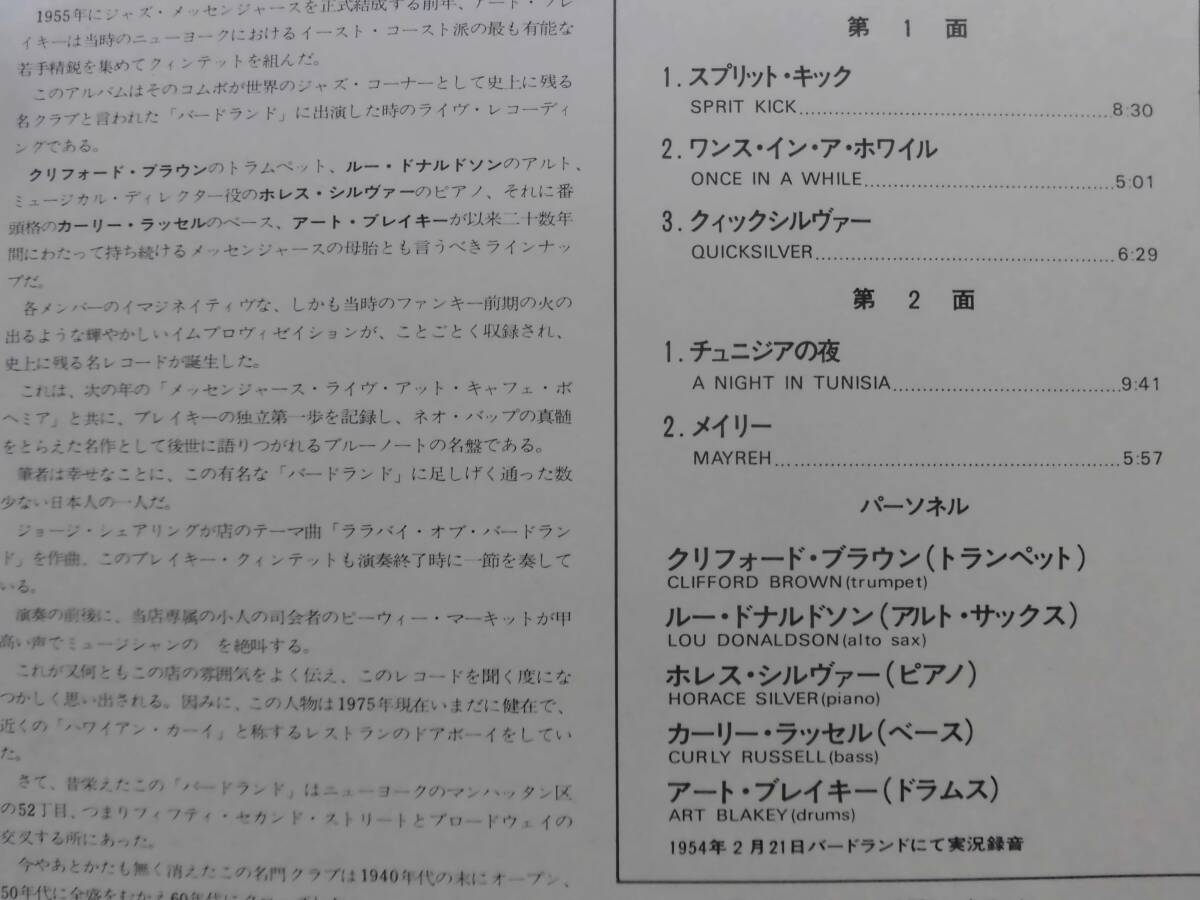 1955年にジャズ・メッセンジャースを正式結成する前年、アート・ブレ
イキーは当時のニューヨークにおけるイースト・コースト派の最も有能な
若手精鋭を集めてクィンテットを組んだ。
このアルバムはそのコムボが世界のジャズ・コーナーとして史上に残る
名クラブと言われた「バードランド」に出演した時のライヴ・レコーディ
ングである。
クリフォード・ブラウンのトラムペット、ルー・ドナルドソンのアルト、
ミュージカル・ディレクター役のホレス・シルヴァーのピアノ、それに番
頭格のカーリー・ラッセルのベース、アート・ブレイキーが以来二十数年
間にわたって持ち続けるメッセンジャースの母胎とも言うべきラインナッ
プだ。
各メンバーのイマジネイティヴな、しかも当時のファンキー前期の火の
出るような輝やかしいイムプロヴィゼイションが、ことごとく収録され、
史上に残る名レコードが誕生した。
これは、次の年の「メッセンジャース・ライヴ・アット・キャフェ・ボ
ヘミア」と共に、ブレイキーの独立第一歩を記録し、ネオ・バップの真髄
をとらえた名作として後世に語りつがれるブルーノートの名盤である。
筆者は幸せなことに、この有名な「バードランド」に足しげく通った数
少ない日本人の一人だ。
ジョージ・シェアリングが店のテーマ曲「ララバイ・オブ・バードラン
ド」を作曲、このブレイキー・クィンテットも演奏終了時に一節を奏して
いる。
演奏の前後に、当店専属の小人の司会者のピーウィー・マーキットが甲
高い声でミュージシャンの を絶叫する。
これが又何ともこの店の雰囲気をよく伝え、このレコードを聞く度にな
つかしく思い出される。因みに、この人物は1975年現在いまだに健在で、
近くの「ハワイアン・カーイ」と称するレストランのドアボーイをしてい
た。
さて、昔栄えたこの「バードランド」はニューヨークのマンハッタン区
の52丁目、つまりフィフティ・セカンド・ストリートとブロードウェイの
交叉する所にあった。
今やあとかたも無く消えたこの名門クラブは1940年代の末にオープン、
50年代に全盛をむかえ60年代に
第 1 面
1. スプリット・キック
SPRIT KICK 8:30
2. ワンス・イン・ア・ホワイル
ONCE IN A WHILE 5:01
3. クィックシルヴァー
QUICKSILVER 6:29
第 2 面
1. チュニジアの夜
A NIGHT IN TUNISIA 9:41
2. メイリー
MAYREH 5:57
パーソネル
クリフォード・ブラウン(トランペット)
CLIFFORD BROWN(trumpet)
ルー・ドナルドソン(アルト・サックス)
LOU DONALDSON(alto sax)
ホレス・シルヴァー(ピアノ)
HORACE SILVER(piano)
カーリー・ラッセル(ベース)
CURLY RUSSELL(bass)
アート・ブレイキー(ドラムス)
ART BLAKEY(drums)
1954年2月21日バードランドにて実況録音